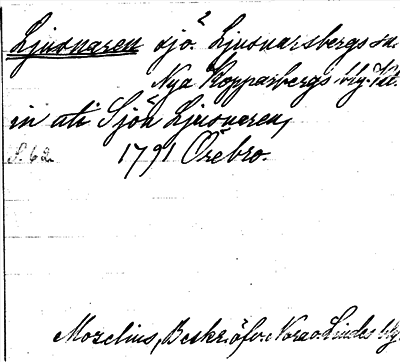 Ljusnaren sjö? Ljusnarsbergs sn.
Nya Kopparbergs blg. Vtl.
in uti Sjön Ljusnaren,
S. 62. 1791 Örebro.
Mozelius, Beskr. öfver Nora o. Lindes blg.